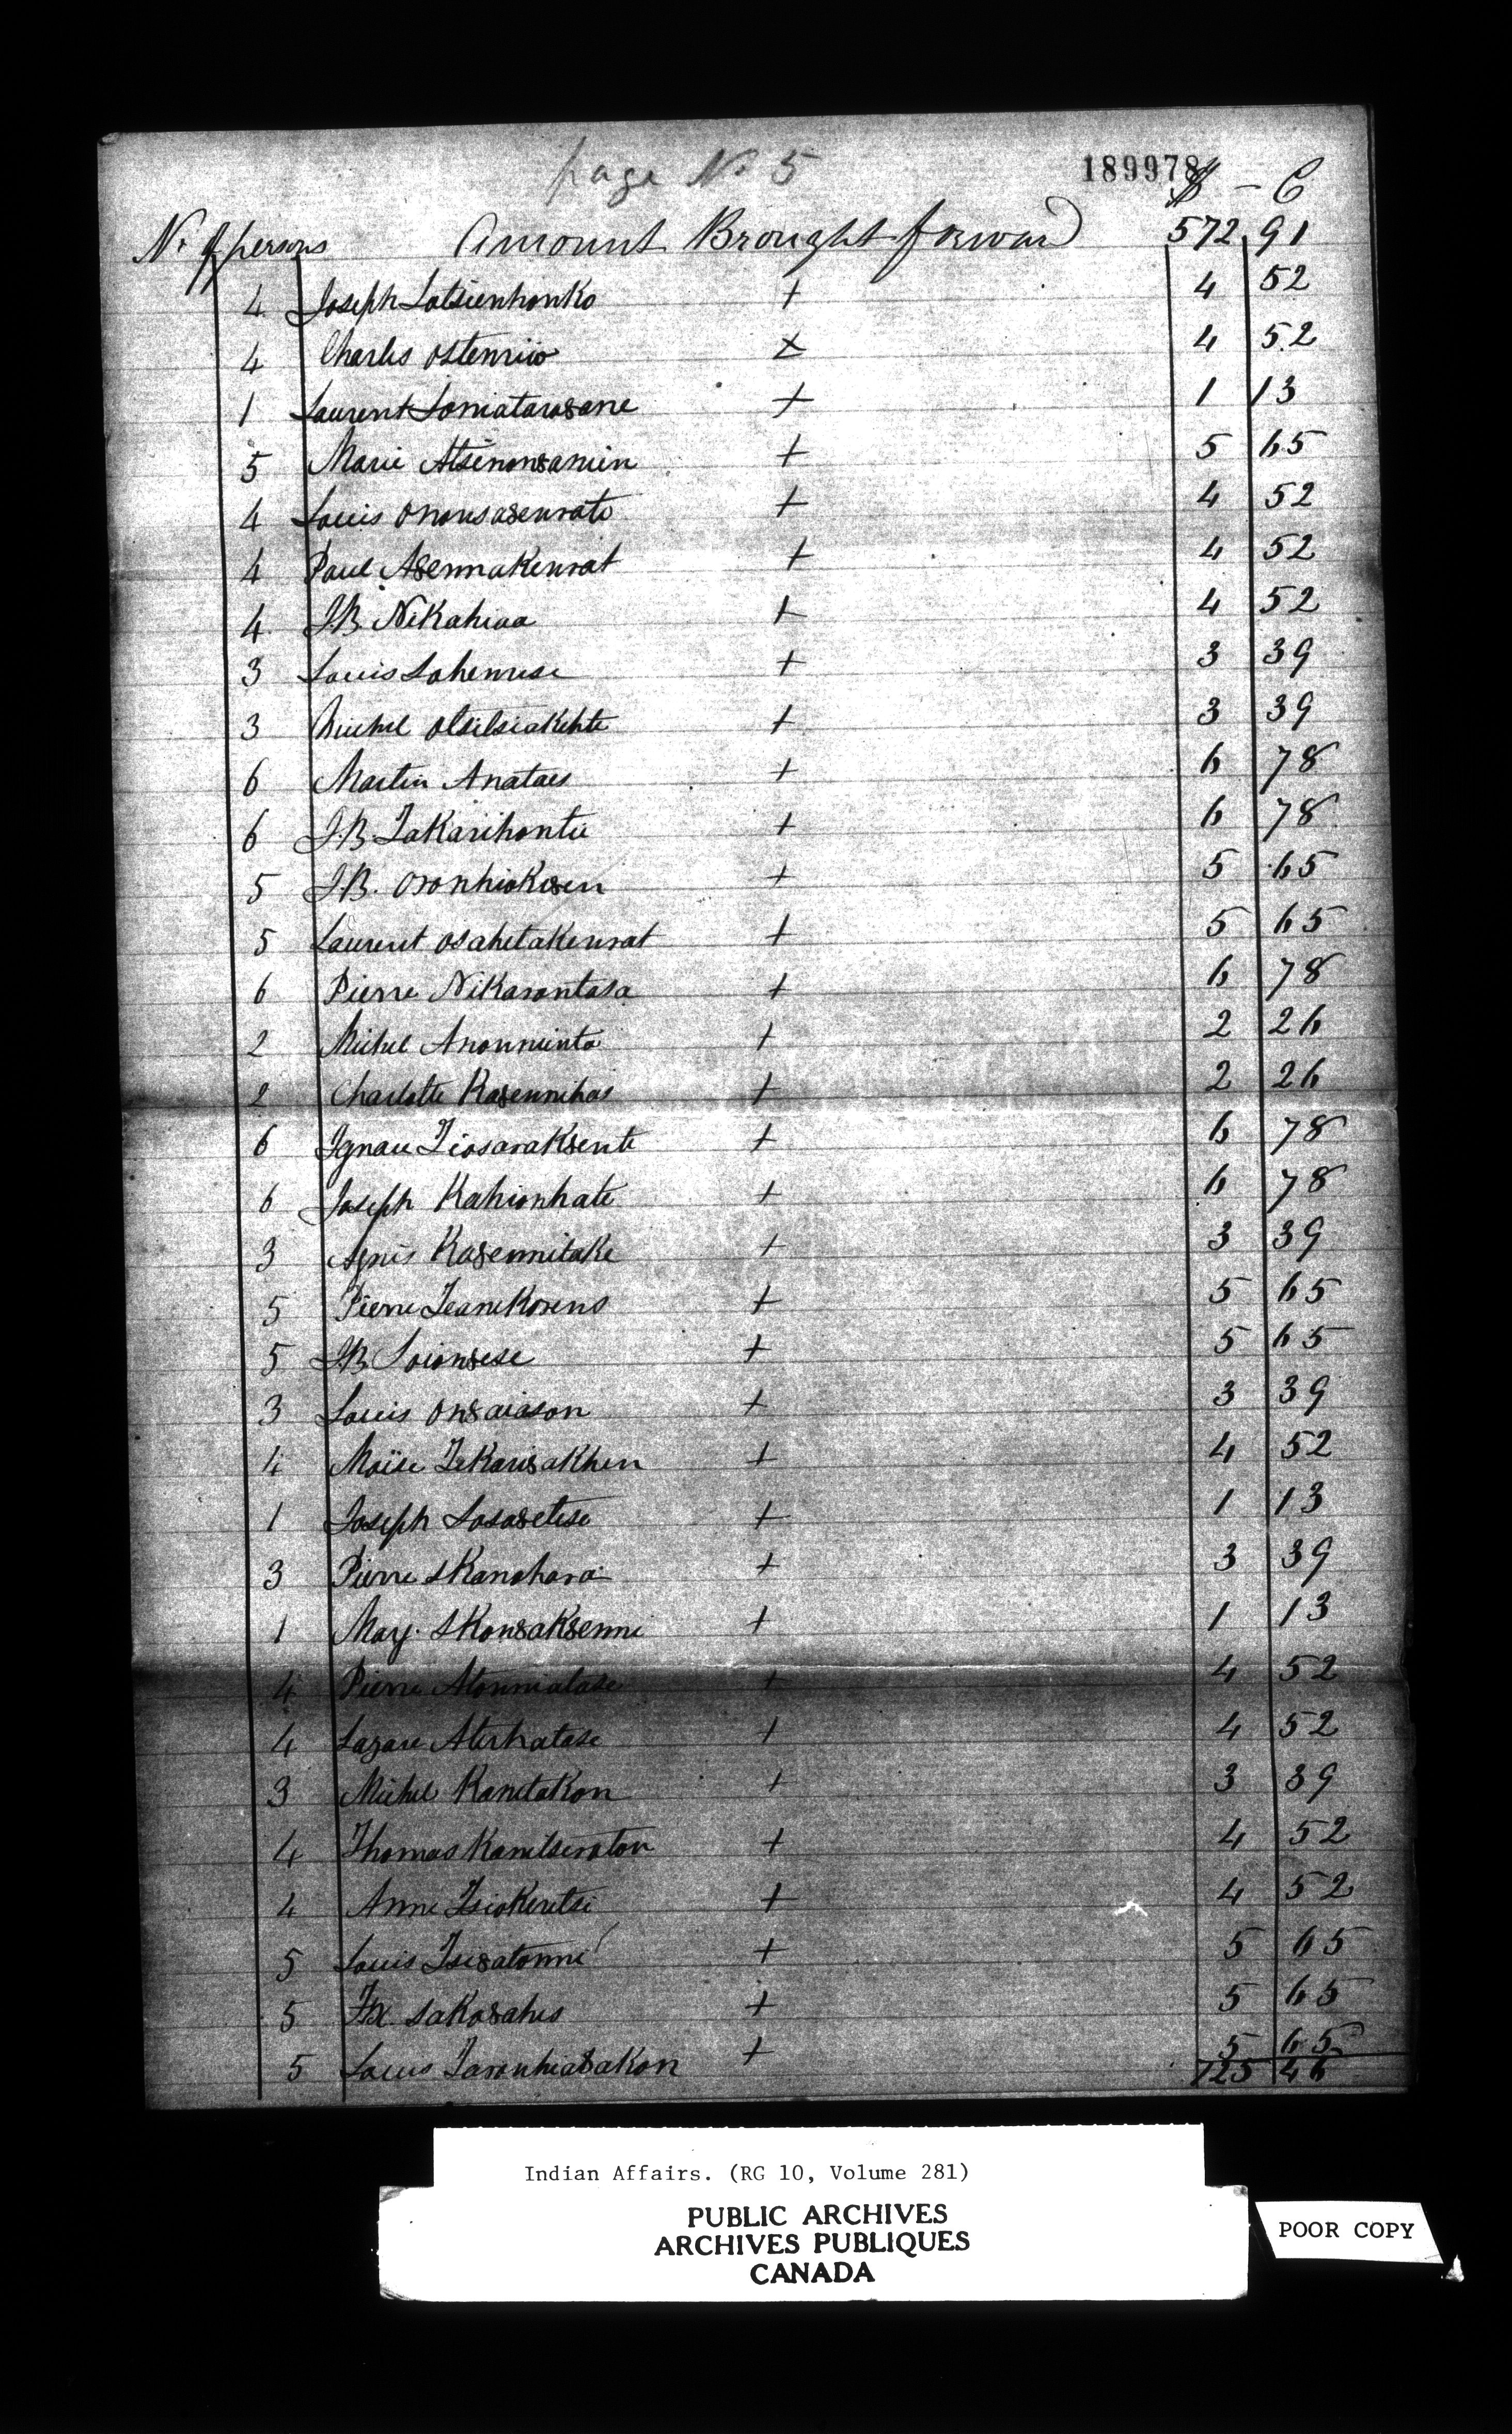 page No 5
189978
$ - C
No of persons Amount Brought forward 572 91
4 Joseph Lotsienhonko + 4 52
4 Charles Ostenriio + 4 52
1 Laurent Soniatarasane + 1 13
5 Marie Atsenon8anien + 5 65
4 Louis Ononsa8enrate + 4 52
4 Paul A8ennakenrat + 4 52
4 J.B Nikahioa + 4 52
3 Louis Sohenrese + 3 39
3 Michel Otsitsiakehte + 3 39
6 Martin Anataes + 6 78
6 J.B Takarihontie + 6 78
5 J.B. Oronhioke8en + 5 65
5 Laurent Osahetakenrat + 5 65
6 Pierre Nikarontasa + 6 78
2 Michel Anonniento + 2 26
2 Charlotte Ka8ennihas + 2 26
6 Ignace Tiosarak8ente + 6 78
6 Joseph Kahionhate + 6 78
3 Agnis Ka8ennitake + 3 39
5 Pierre Teanekorens + 5 65
5 J.B Soion8ese + 5 65
3 Louis On8aiason + 3 39
4 Moïse Tekari8akhen + 4 52
1 Joseph Sosa8etese + 1 13
3 Pierre Skanahara + 3 39
1 Mary. Skon8ak8enni + 1 13
4 Pierre Atonniatase + 4 52
4 Lazare Aterhatase + 4 52
3 Michel Kanetakon + 3 39
4 Thomas Kanetseraton + 4 52
4 Anne Tsiokeretsi + 4 52
5 Louis Tse8atonni + 5 65
5 Fx. Sako8ahes + 5 65
5 Louis Taronhia8akon + 5 65
725 46
Indian Affairs. (RG 10, Volume 281)
PUBLIC ARCHIVES
ARCHIVES PUBLIQUES
CANADA
POOR COPY